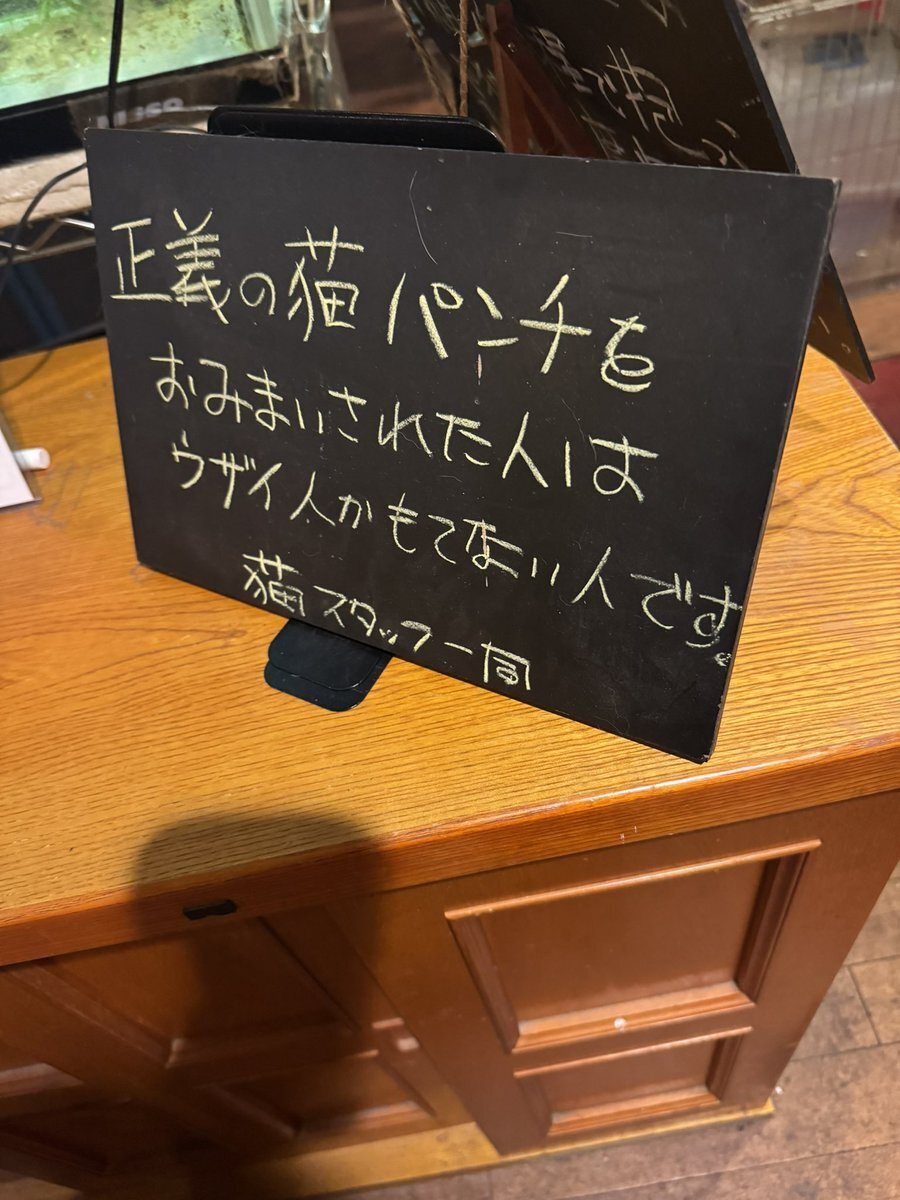 正義の猫パンチを
おみまいされた人は
ウザイ人かもてない人です。
猫スタッフ一同